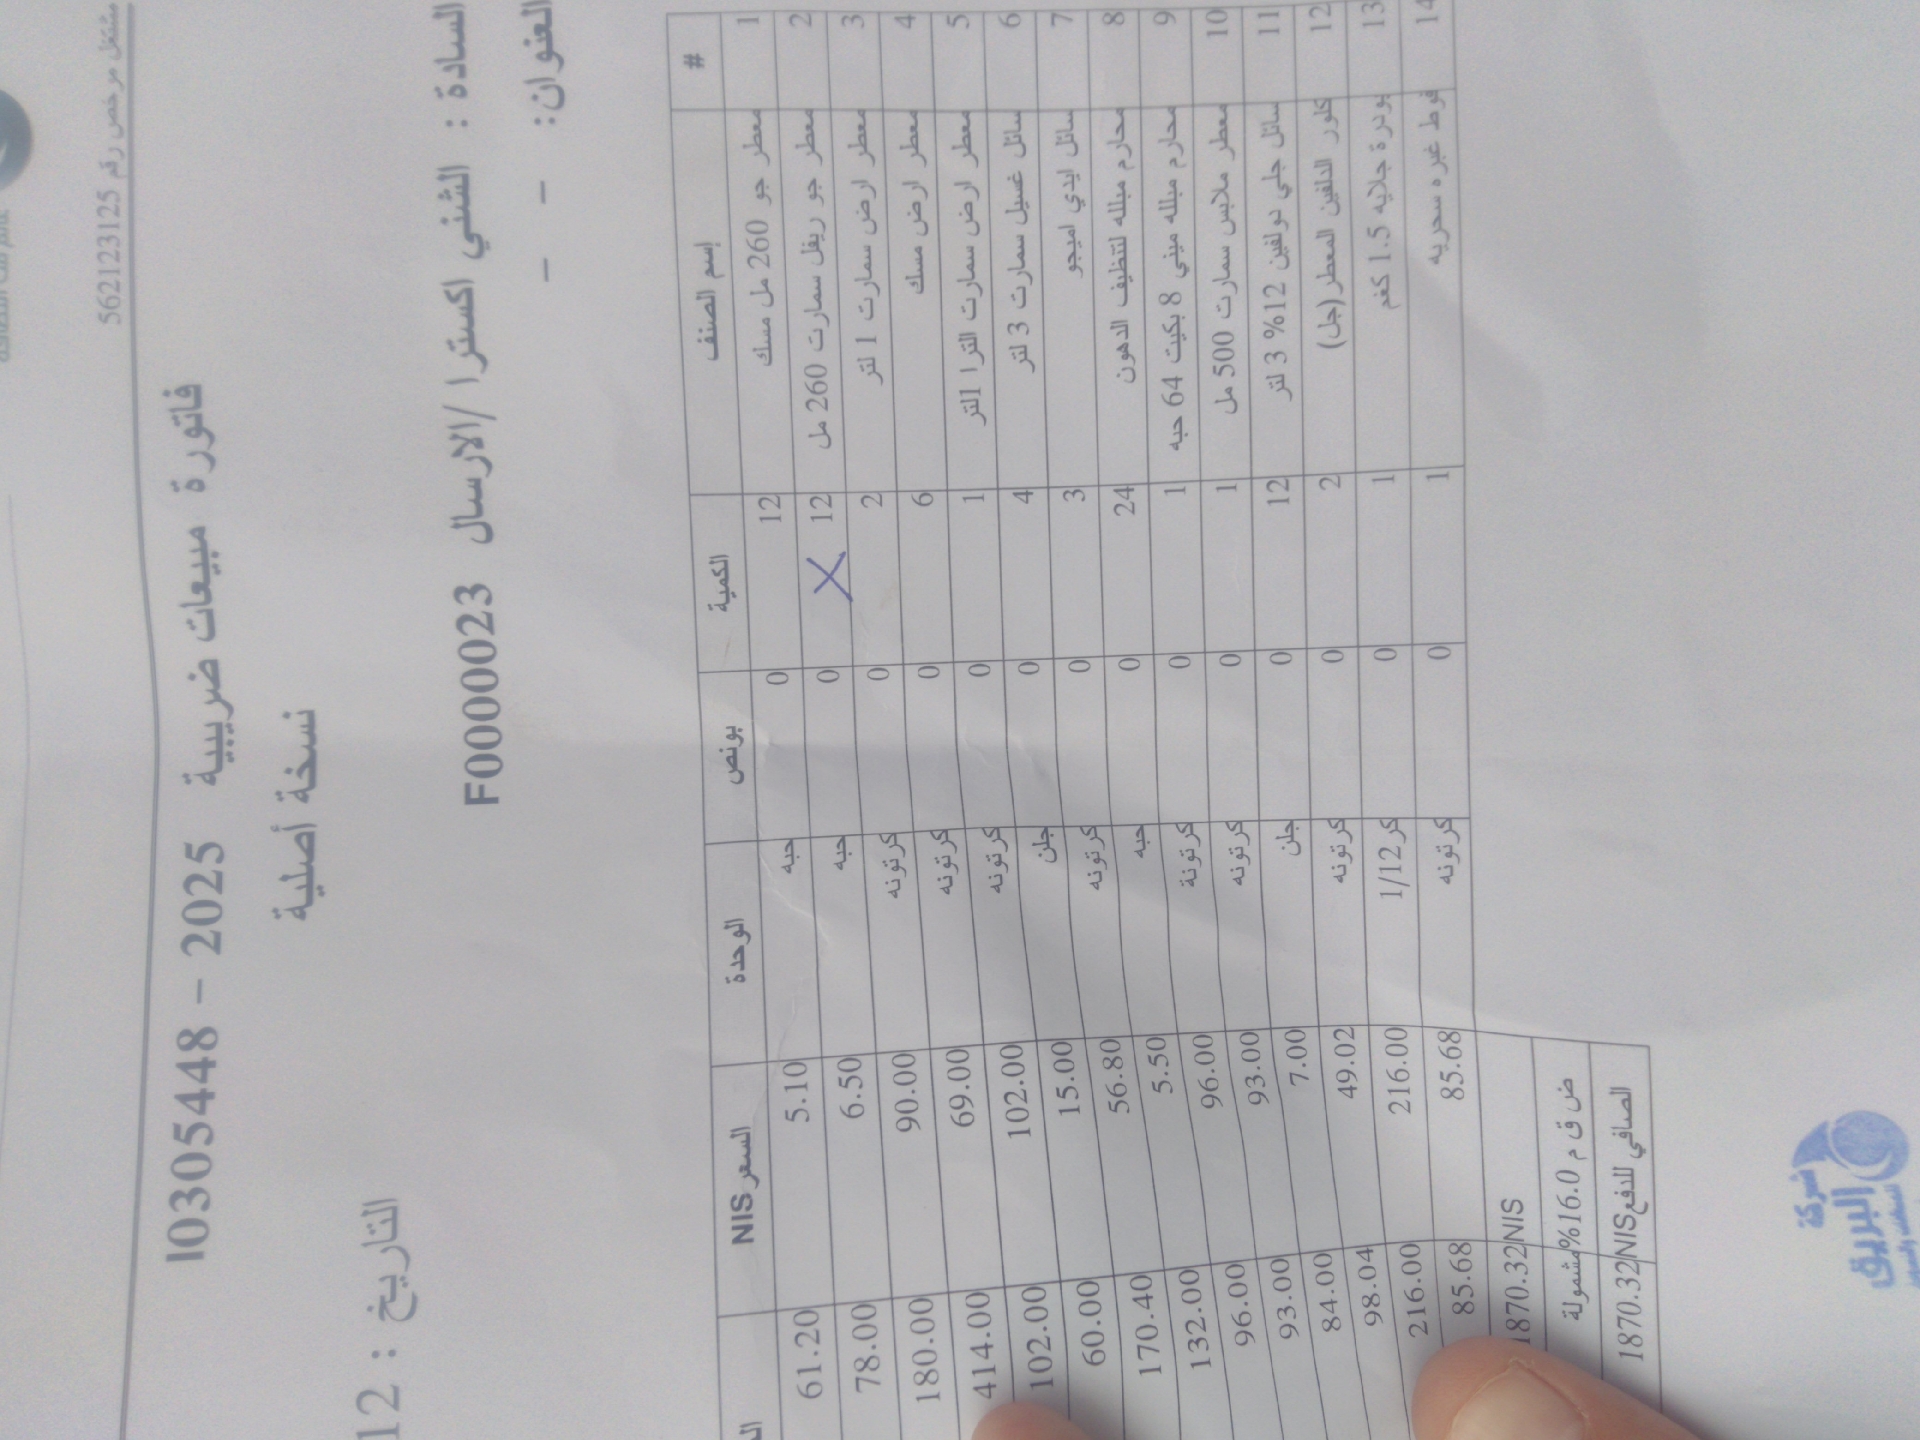 مشتغل مرخص رقم 562123125
فاتورة مبيعات ضريبية 2025 - I0305448
نسخة أصلية
التاريخ : 12
السادة : الشني اكسترا /الارسال F0000023
العنوان: - -
# إسم الصنف الكمية بونص الوحدة السعر NIS
1 معطر جو 260 مل مسك 12 0 حبه 5.10 61.20
2 معطر جو ريفل سمارت 260 مل 12 X 0 حبه 6.50 78.00
3 معطر ارض سمارت 1 لتر 2 0 كرتونه 90.00 180.00
4 معطر ارض مسك 6 0 كرتونه 69.00 414.00
5 معطر ارض سمارت الترا 1لتر 1 0 كرتونه 102.00 102.00
6 سائل غسيل سمارت 3 لتر 4 0 جلن 15.00 60.00
7 سائل ايدي اميجو 3 0 كرتونه 56.80 170.40
8 محارم مبلله لتنظيف الدهون 24 0 حبه 5.50 132.00
9 محارم مبلله ميني 8 بكيت 64 حبه 1 0 كرتونة 96.00 96.00
10 معطر ملابس سمارت 500 مل 1 0 كرتونه 93.00 93.00
11 سائل جلي دولفين 12% 3 لتر 12 0 جلن 7.00 84.00
12 كلور الدلفين المعطر (جل) 2 0 كرتونه 49.02 98.04
13 بودرة جلايه 1.5 كغم 1 0 كر 1/12 216.00 216.00
14 فوط غبره سحريه 1 0 كرتونه 85.68 85.68
1870.32 NIS
ض ق م 16.0% مشمولة
الصافي للدفع NIS 1870.32
شركة
البريق